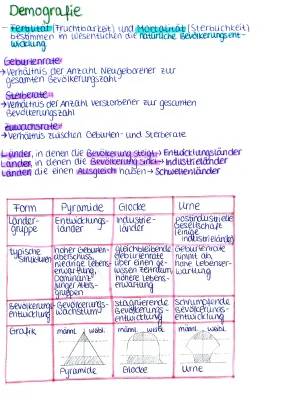 Demografie
- Fertilität (Fruchtbarkeit) und Mortalität (Sterblichkeit)
bestimmen im Wesentlichen die natürliche Bevölkerungsent-
wicklung
Geburtenrate
→ Verhältnis der Anzahl Neugeborener zur
gesamten Bevölkerungszahl
Sterberate
→ Verhältnis der Anzahl Verstorbener zur gesamten
Bevölkerungszahl
Zuwachsrate
→ Verhältnis zwischen Geburten- und Sterberate
Länder, in denen die Bevölkerung steigt → Entwicklungsländer
Länder, in denen die Bevölkerung sinkt → Industrieländer
Länder, die einen Ausgleich haben → Schwellenländer
Form Pyramide Glocke Urne
Länder-
gruppe
Entwicklungs-
länder
Industrie-
länder
postindustrielle
Gesellschaft
(einige
Industrieländer)
typische
Strukturen
hoher Geburten-
überschuss,
niedrige Lebens-
erwartung,
Dominanz
junger Alters-
gruppen
gleichbleibende
Geburtenrate
über einen ge-
wissen Zeitraum,
höhere Lebens-
erwartung
Geburtenrate
nimmt ab,
hohe Lebenser-
wartung
Bevölkerungs-
entwicklung
Bevölkerungs-
wachstum
stagnierende
Bevölkerungs-
entwicklung
Schrumpfende
Bevölkerungs-
entwicklung
Grafik
männl. weibl.
Pyramide
männl. weibl.
Glocke
männl. weibl.
Urne